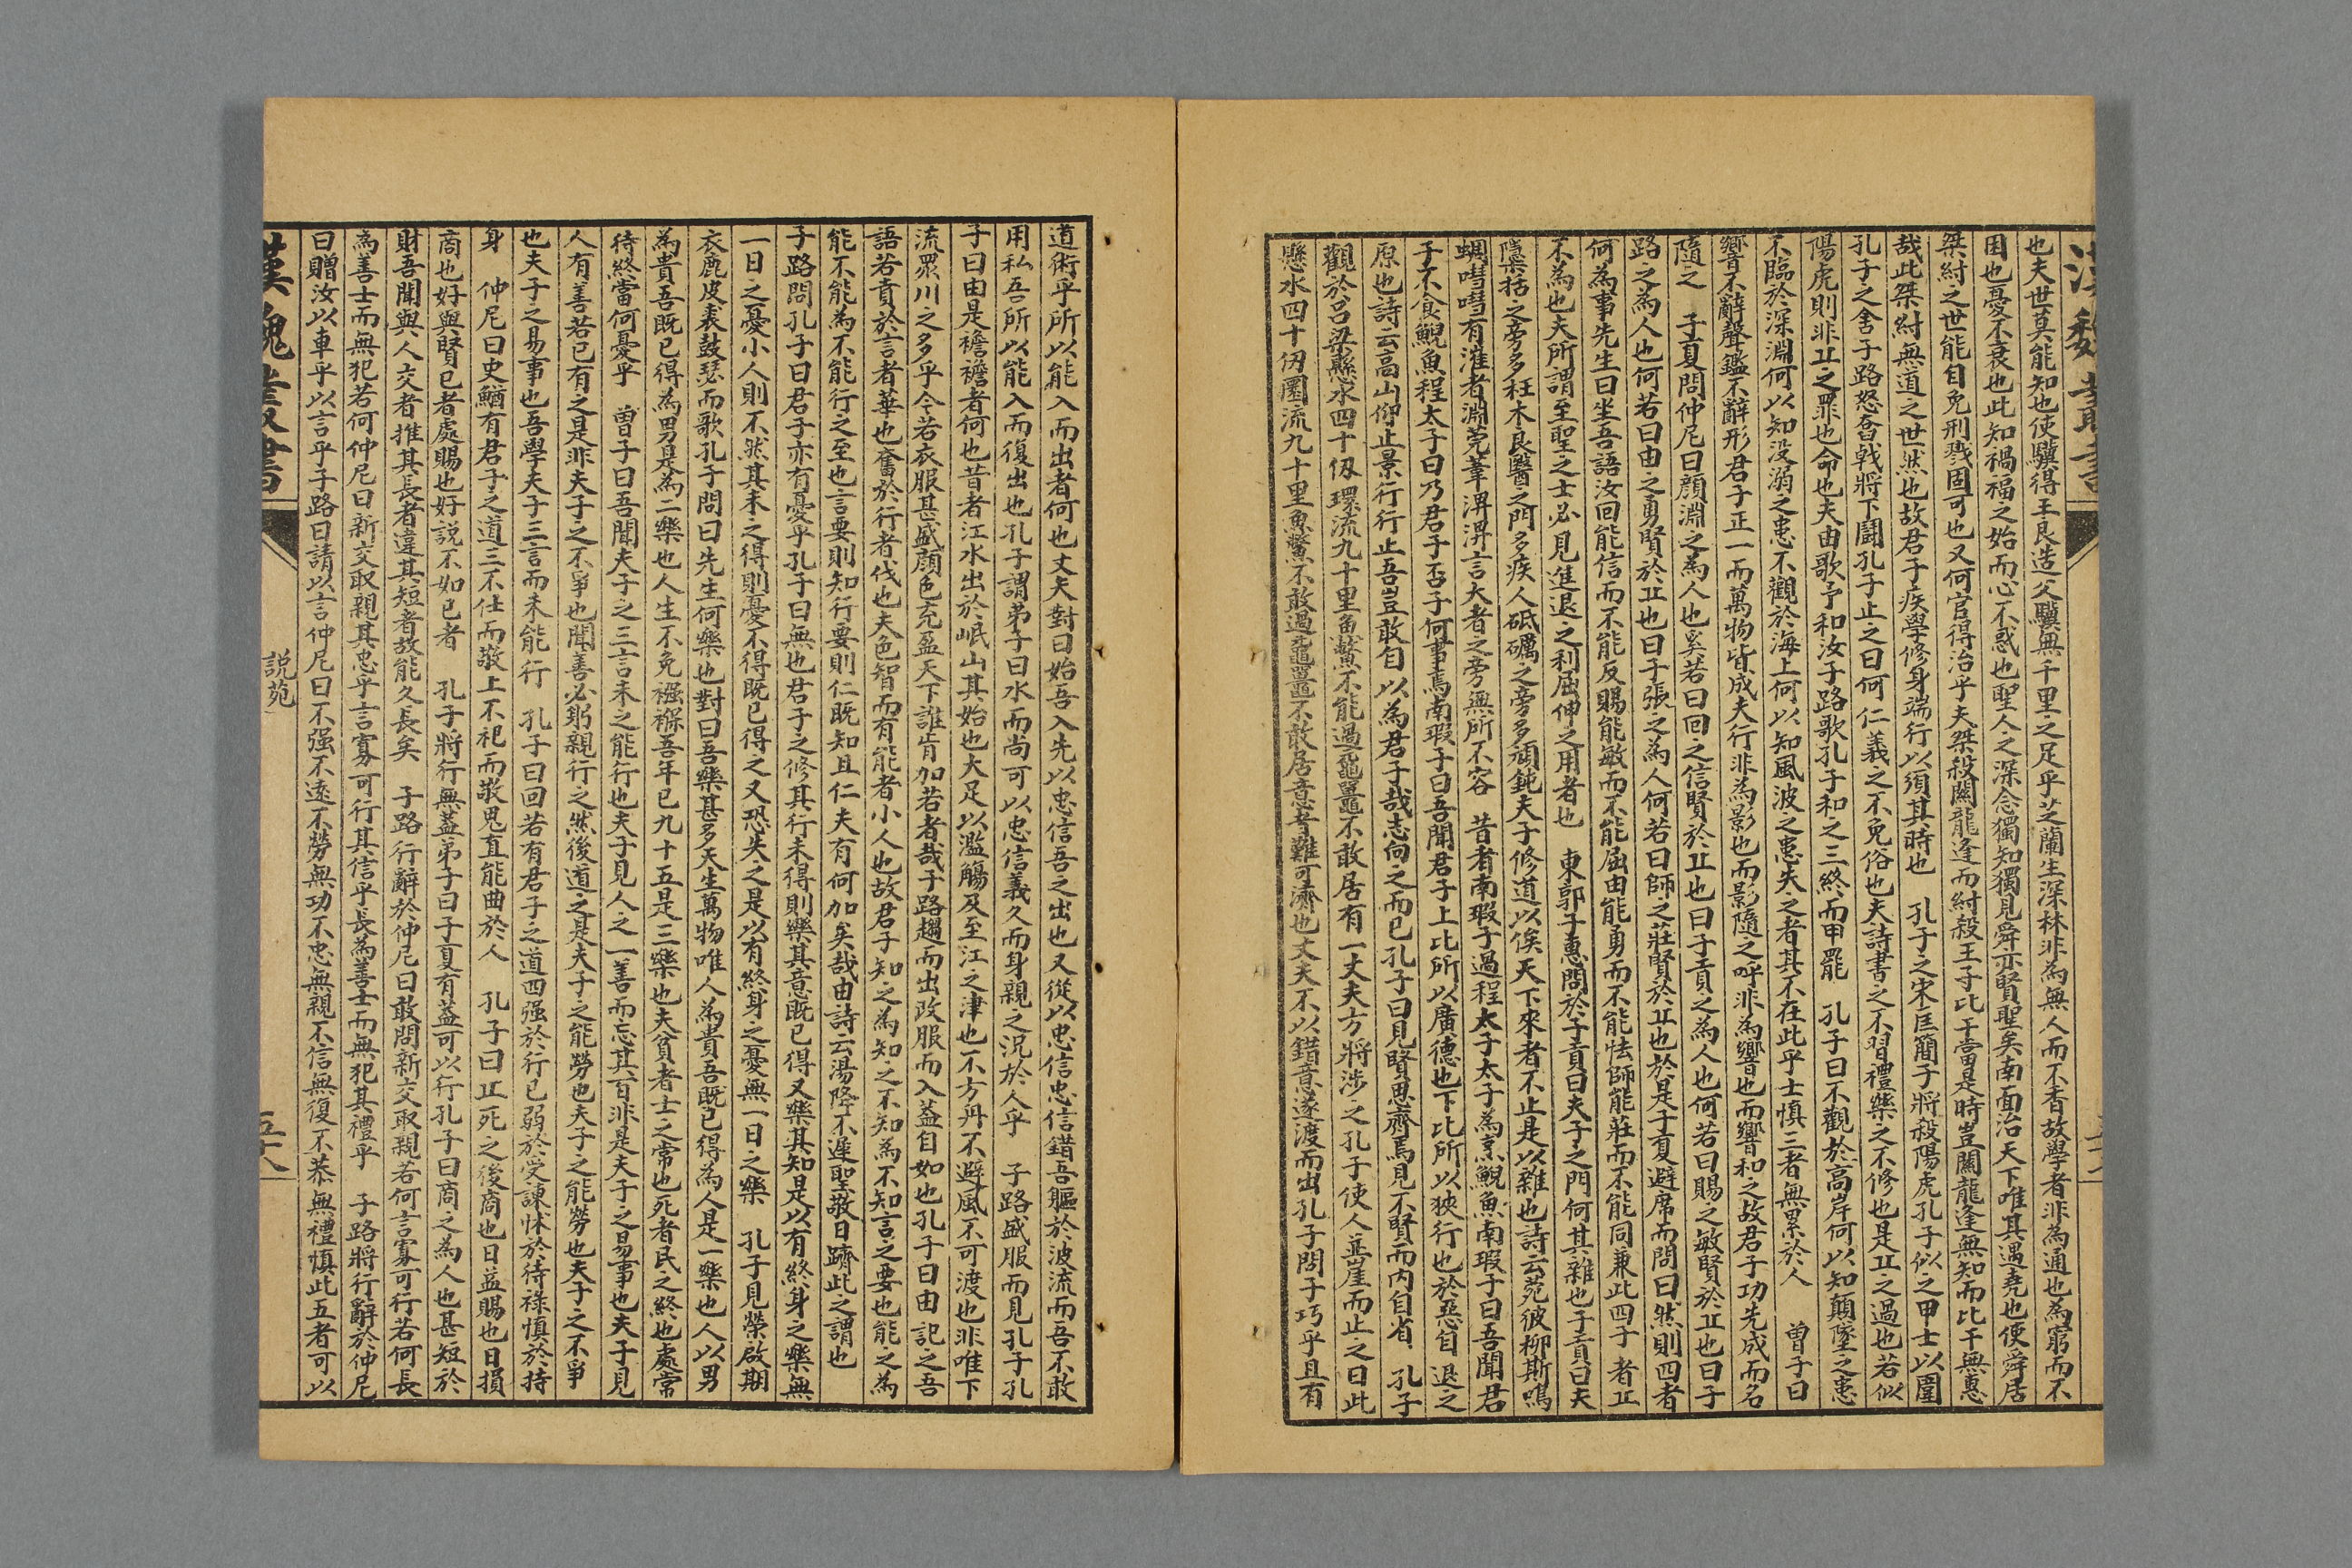 漢魏叢書
也夫世莫能知也使驥得王良造父驥無千里之足乎芝蘭生深林非為無人而不香故學者非為通也為窮而不
困也憂不衰也此知禍福之始而心不惑也聖人之深念獨知獨見舜亦賢聖矣南面治天下唯其遇堯也使舜居
桀紂之世能自免刑戮固可也又何官得治乎夫桀殺關龍逢而紂殺王子比干當是時豈關龍逢無知而比干無惠
哉此桀紂無道之世然也故君子疾學修身端行以須其時也 孔子之宋匡簡子將殺陽虎孔子似之甲士以圍
孔子之舍子路怒奮戟將下鬬孔子止之曰何仁義之不免俗也夫詩書之不習禮樂之不修也是丘之過也若似
陽虎則非丘之罪也命也夫由歌予和汝子路歌孔子和之三終而甲罷 孔子曰不觀於高岸何以知顛墜之患
不臨於深淵何以知没溺之患不觀於海上何以知風波之患失之者其不在此乎士慎三者無累於人 曾子曰
響不辭聲鑑不辭形君子正一而萬物皆成夫行非為影也而影隨之呼非為響也而響和之故君子功先成而名
隨之 子夏問仲尼曰顔淵之為人也奚若曰回之信賢於丘也曰子貢之為人也何若曰賜之敏賢於丘也曰子
路之為人也何若曰由之勇賢於丘也曰子張之為人何若曰師之莊賢於丘也於是子夏避席而問曰然則四者
何為事先生曰坐吾語汝回能信而不能反賜能敏而不能屈由能勇而不能怯師能莊而不能同兼此四子者丘
不為也夫所謂至聖之士必見進退之利屈伸之用者也 東郭子惠問於子貢曰夫子之門何其雜也子貢曰夫
隱栝之旁多枉木良醫之門多疾人砥礪之旁多頑鈍夫子修道以俟天下來者不止是以雜也詩云菀彼柳斯鳴
蜩嘒嘒有漼者淵莞葦淠淠言大者之旁無所不容 昔者南瑕子過程太子太子為烹鯢魚南瑕子曰吾聞君
子不食鯢魚程太子曰乃君子否子何事焉南瑕子曰吾聞君子上比所以廣德也下比所以狹行也於惡自退之
原也詩云高山仰止景行行止吾豈敢自以為君子哉志向之而已孔子曰見賢思齊焉見不賢而内自省 孔子
觀於吕梁懸水四十仭環流九十里魚鱉不能過黿鼉不敢居有一丈夫方將涉之孔子使人並崖而止之曰此
懸水四十仭圜流九十里魚鱉不敢過黿鼉不敢居意者難可濟也丈夫不以錯意遂渡而出孔子問子巧乎且有
道術乎所以能入而出者何也丈夫對曰始吾入先以忠信吾之出也又從以忠信忠信錯吾軀於波流而吾不敢
用私吾所以能入而復出也孔子謂弟子曰水而尚可以忠信義久而身親之況於人乎 子路盛服而見孔子孔
子曰由是襜襜者何也昔者江水出於岷山其始也大足以濫觴及至江之津也不方舟不避風不可渡也非唯下
流眾川之多乎今若衣服甚盛顔色充盈天下誰肯加若者哉子路趨而出改服而入蓋自如也孔子曰由記之吾
語若賁於言者華也奮於行者伐也夫色智而有能者小人也故君子知之為知之不知為不知言之要也能之為
能不能為不能行之至也言要則知行要則仁既知且仁夫有何加矣哉由詩云湯降不遲聖敬日躋此之謂也
子路問孔子曰君子亦有憂乎孔子曰無也君子之修其行未得則樂其意既已得又樂其知是以有終身之樂無
一日之憂小人則不然其未之得則憂不得既已得之又恐失之是以有終身之憂無一日之樂 孔子見榮啟期
衣鹿皮裘鼓瑟而歌孔子問曰先生何樂也對曰吾樂甚多天生萬物唯人為貴吾既已得為人是一樂也人以男
為貴吾既已得為男是為二樂也人生不免襁褓吾年已九十五是三樂也夫貧者士之常也死者民之終也處常
待終當何憂乎 曾子曰吾聞夫子之三言未之能行也夫子見人之一善而忘其百非是夫子之易事也夫子見
人有善若己有之是非夫子之不爭也聞善必躬親行之然後道之是夫子之能勞也夫子之能勞也夫子之不爭
也夫子之易事也吾學夫子三言而未能行 孔子曰回若有君子之道四强於行己弱於受諫怵於待祿慎於持
身 仲尼曰史鰌有君子之道三不仕而敬上不祀而敬鬼直能曲於人 孔子曰丘死之後商也日益賜也日損
商也好與賢己者處賜也好説不如己者 孔子將行無蓋弟子曰子夏有蓋可以行孔子曰商之為人也甚短於
財吾聞與人交者推其長者違其短者故能久長矣 子路行辭於仲尼曰敢問新交取親若何言寡可行若何長
為善士而無犯若何仲尼曰新交取親其忠乎言寡可行其信乎長為善士而無犯其禮乎 子路將行辭於仲尼
曰贈汝以車乎以言乎子路曰請以言仲尼曰不强不遠不勞無功不忠無親不信無復不恭無禮慎此五者可以
漢魏叢書 説苑 五十八